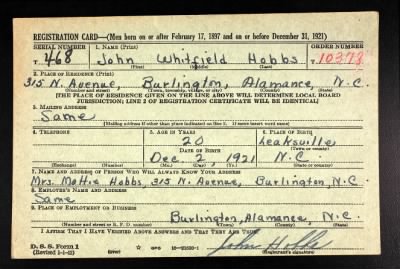 REGISTRATION CARD—(Men born on or after February 17, 1897 and on or before December 31, 1921)
SERIAL NUMBER 1. NAME (Print) ORDER NUMBER
T 468 John Whitfield Hobbs 10378
(First) (Middle) (Last)
2. PLACE OF RESIDENCE (Print)
315 N. Avenue, Burlington, Alamance, N.C.
(Number and street) (Town, township, village, or city) (County) (State)
[THE PLACE OF RESIDENCE GIVEN ON THE LINE ABOVE WILL DETERMINE LOCAL BOARD
JURISDICTION; LINE 2 OF REGISTRATION CERTIFICATE WILL BE IDENTICAL]
3. MAILING ADDRESS
Same
[Mailing address if other than place indicated on line 2. If same insert word same]
4. TELEPHONE 5. AGE IN YEARS 6. PLACE OF BIRTH
20 Leaksville
DATE OF BIRTH (Town or county)
Dec. 2, 1921 N.C.
(Exchange) (Number) (Mo.) (Day) (Yr.) (State or country)
7. NAME AND ADDRESS OF PERSON WHO WILL ALWAYS KNOW YOUR ADDRESS
Mrs. Mottie Hobbs, 315 N. Avenue, Burlington, N.C.
8. EMPLOYER'S NAME AND ADDRESS
Same
9. PLACE OF EMPLOYMENT OR BUSINESS
Burlington, Alamance, N.C.
(Number and street or R. F. D. number) (Town) (County) (State)
I AFFIRM THAT I HAVE VERIFIED ABOVE ANSWERS AND THAT THEY ARE TRUE.
D. S. S. Form 1
(Revised 1-1-42) (over) John Hobbs
(Registrant's signature)